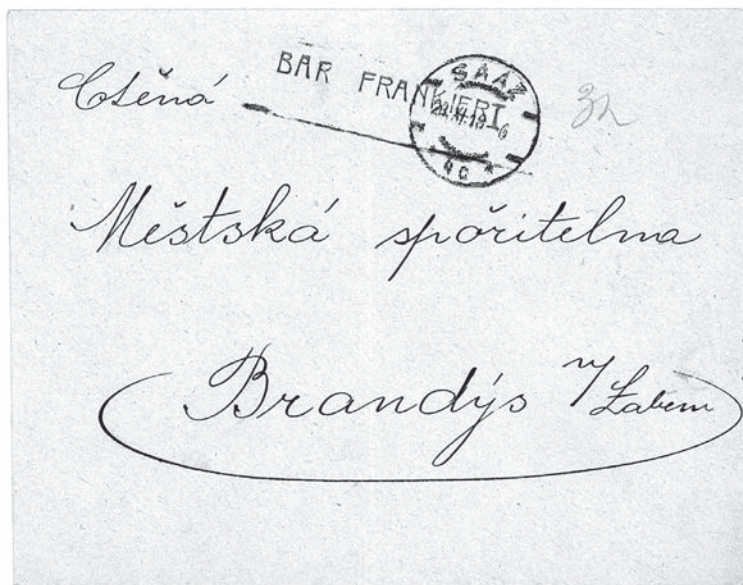 Ctěná
BAR FRANKIERT
SAAZ
4c
3h
Městská spořitelna
Brandýs n/Labem